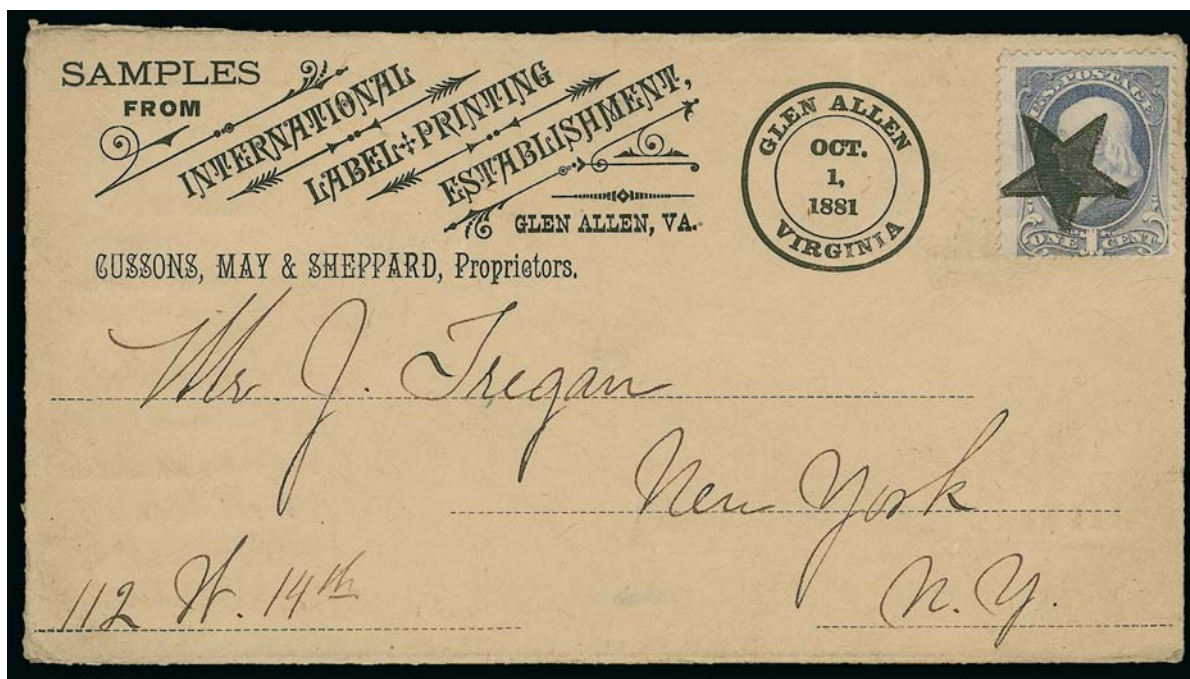 SAMPLES
FROM
INTERNATIONAL
LABEL + PRINTING
ESTABLISHMENT,
GLEN ALLEN, VA.
CUSSONS, MAY & SHEPPARD, Proprietors.
GLEN ALLEN
OCT.
1,
1881
VIRGINIA
U.S. POSTAGE
ONE 1 CENT
Mr J. Tregan
New York
112 W. 14th
N. Y.